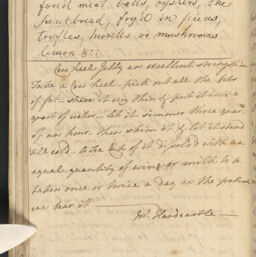 forc'd meat balls, oysters, the
sweetbread, fry'd in pieces,
truffles, morells or mushrooms
limon &c:
Cow heel Jelly an excellent strength
Take a Cow heel pick out all the bits
of fat then it very thin & put it in a
quart of water let it simmer three quar
of an hour then skim it & let it stand
till cold. A Tea Cup of it disolved with an
equal quantity of wine or milk to be
taken once or twice a day as the patient
can bear it
Mrs. Hardcastle